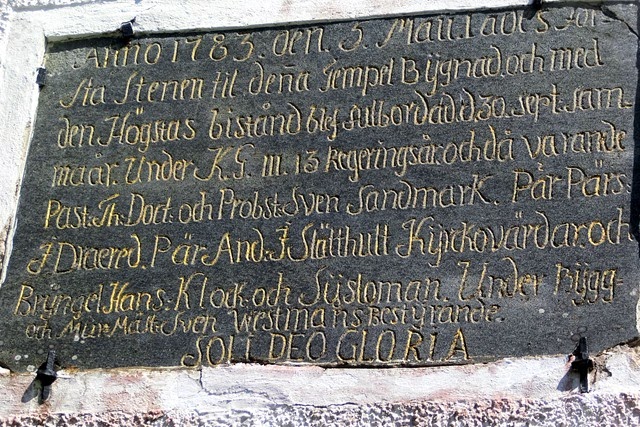 Anno 1783. den. 3. Maii Lades För
sta Stenen til deña Tempel Bÿgnad. och med
den Högstas bistånd blef fulbordad. d. 30. sept. sam-
ma år. Under K. G. III. 13 Regeringsår. och då varande
Past. Th. Doct. och Probst. Sven Sandmark. Pär Pärs.
J Draered. Pär And. J Slätthult Kÿrckovärdar. och
Bryngel Hans. Klock. och Sÿsloman. Under Bÿgg-
och Mur Mäst. Sven Westmans Bestÿrande.
SOLI DEO GLORIA